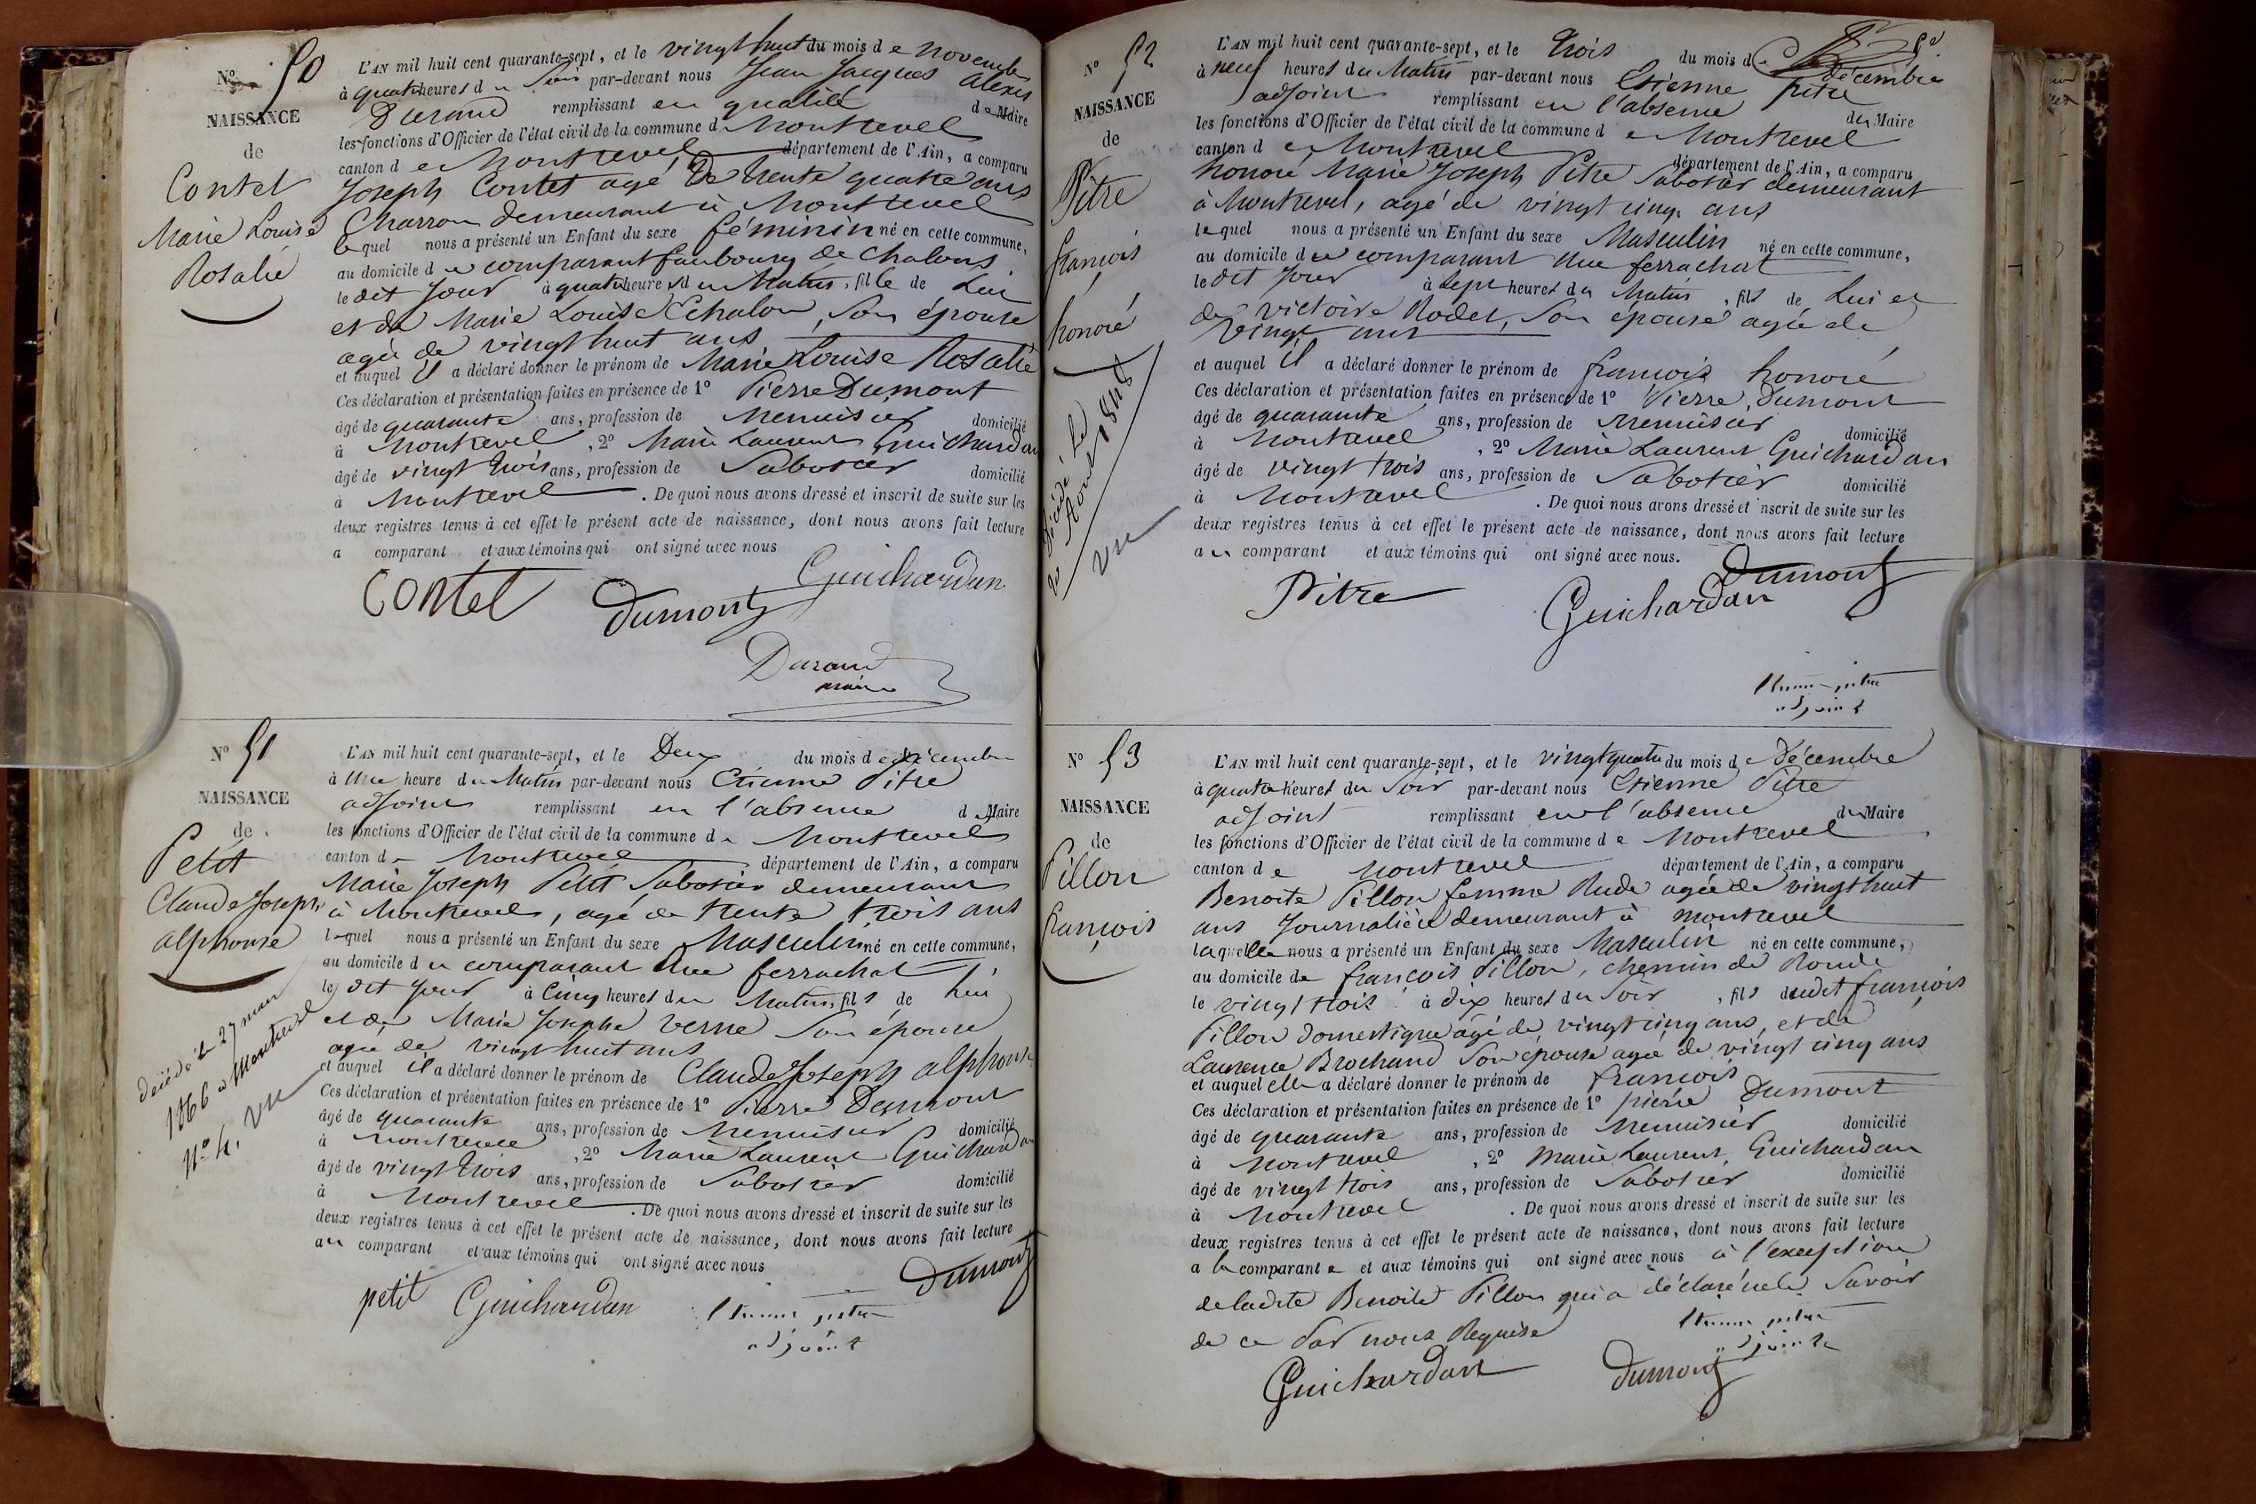 N° 50
NAISSANCE
de
Contet
Marie Louise
Rosalie
L'AN mil huit cent quarante-sept, et le vingt huit du mois de novembre
à quatre heures du Soir par-devant nous Jean Jacques Alexis
Durand remplissant en qualité de Maire
les fonctions d'Officier de l'état civil de la commune de Montrevel
canton de Montrevel département de l'Ain, a comparu
Joseph Contet agé De trente quatre ans
Charron demeurant à Montrevel
lequel nous a présenté un Enfant du sexe féminin né en cette commune,
au domicile du comparant faubourg de Chalons
le dit jour à quatre heures du Matin, fille de Lui
et de Marie Louise Echalon, Son épouse
agée de vingt huit ans
et auquel il a déclaré donner le prénom de Marie Louise Rosalie
Ces déclaration et présentation faites en présence de 1° Pierre Dumont
âgé de quarante ans, profession de Menuisier domicilié
à Montrevel, 2° Marie Laurent Guichardan
âgé de vingt trois ans, profession de Sabotier domicilié
à Montrevel. De quoi nous avons dressé et inscrit de suite sur les
deux registres tenus à cet effet le présent acte de naissance, dont nous avons fait lecture
a comparant et aux témoins qui ont signé avec nous
Contet Dumont Guichardan
Durand
maire
N° 51
NAISSANCE
de
Petit
Claude Joseph
alphonse
décédé le 27 mars
1866 à Montrevel
N° 4. vu
L'AN mil huit cent quarante-sept, et le Deux du mois de décembre
à Une heure du Matin par-devant nous Etienne Pitre
adjoint remplissant en l'absence du Maire
les fonctions d'Officier de l'état civil de la commune de Montrevel
canton de Montrevel département de l'Ain, a comparu
Marie Joseph Petit Sabotier demeurant
à Montrevel, agé de trente trois ans
lequel nous a présenté un Enfant du sexe Masculin né en cette commune,
au domicile du comparant Rue ferrachat
le dit jour à Cinq heures du Matin, fils de lui
et de Marie Josephe Verne Son épouse
agée de vingt huit ans
et auquel il a déclaré donner le prénom de Claude Joseph alphonse
Ces déclaration et présentation faites en présence de 1° Pierre Dumont
âgé de quarante ans, profession de Menuisier domicilié
à Montrevel, 2° Marie Laurent Guichardan
âgé de vingt trois ans, profession de Sabotier domicilié
à Montrevel. De quoi nous avons dressé et inscrit de suite sur les
deux registres tenus à cet effet le présent acte de naissance, dont nous avons fait lecture
au comparant et aux témoins qui ont signé avec nous
petit Guichardan Etienne pitre Dumont
adjoint
N° 52
NAISSANCE
de
Pitre
françois
honoré
Décédé le
Aout 1848
vu
L'AN mil huit cent quarante-sept, et le trois du mois de décembre
à neuf heures du Matin par-devant nous Etienne Pitre
adjoint remplissant en l'absence du Maire
les fonctions d'Officier de l'état civil de la commune de Montrevel
canton de Montrevel département de l'Ain, a comparu
honoré Marie Joseph Pitre Sabotier demeurant
à Montrevel, agé de vingt cinq ans
lequel nous a présenté un Enfant du sexe Masculin né en cette commune,
au domicile du comparant Rue ferrachat
le dit jour à Sept heures du Matin, fils de Lui et
de victoire Rodet, Son épouse agée de
vingt ans
et auquel il a déclaré donner le prénom de françois honoré
Ces déclaration et présentation faites en présence de 1° Pierre Dumont
âgé de quarante ans, profession de Menuisier domicilié
à Montrevel, 2° Marie Laurent Guichardan
âgé de vingt trois ans, profession de Sabotier domicilié
à Montrevel. De quoi nous avons dressé et inscrit de suite sur les
deux registres tenus à cet effet le présent acte de naissance, dont nous avons fait lecture
au comparant et aux témoins qui ont signé avec nous.
Pitre Guichardan Dumont
Etienne pitre
adjoint
N° 53
NAISSANCE
de
Pillon
françois
L'AN mil huit cent quarante-sept, et le vingt quatre du mois de Décembre
à quatre heures du Soir par-devant nous Etienne Pitre
adjoint remplissant en l'absence du Maire
les fonctions d'Officier de l'état civil de la commune de Montrevel
canton de Montrevel département de l'Ain, a comparu
Benoite Pillon femme Rude agée de vingt huit
ans Journalière demeurant à Montrevel
laquelle nous a présenté un Enfant du sexe Masculin né en cette commune,
au domicile de françois Pillon, chemin de Ronde
le vingt trois à dix heures du Soir, fils dudit françois
Pillon domestique âgé de vingt cinq ans, et de
Laurence Brochand Son épouse agée de vingt cinq ans
et auquel elle a déclaré donner le prénom de françois
Ces déclaration et présentation faites en présence de 1° pierre Dumont
âgé de quarante ans, profession de Menuisier domicilié
à Montrevel, 2° Marie Laurent Guichardan
âgé de vingt trois ans, profession de Sabotier domicilié
à Montrevel. De quoi nous avons dressé et inscrit de suite sur les
deux registres tenus à cet effet le présent acte de naissance, dont nous avons fait lecture
a la comparante et aux témoins qui ont signé avec nous à l'exception
de ladite Benoite Pillon qui a déclaré ne le Savoir
de ce Par nous Requise
Etienne pitre
adjoint
Guichardan Dumont